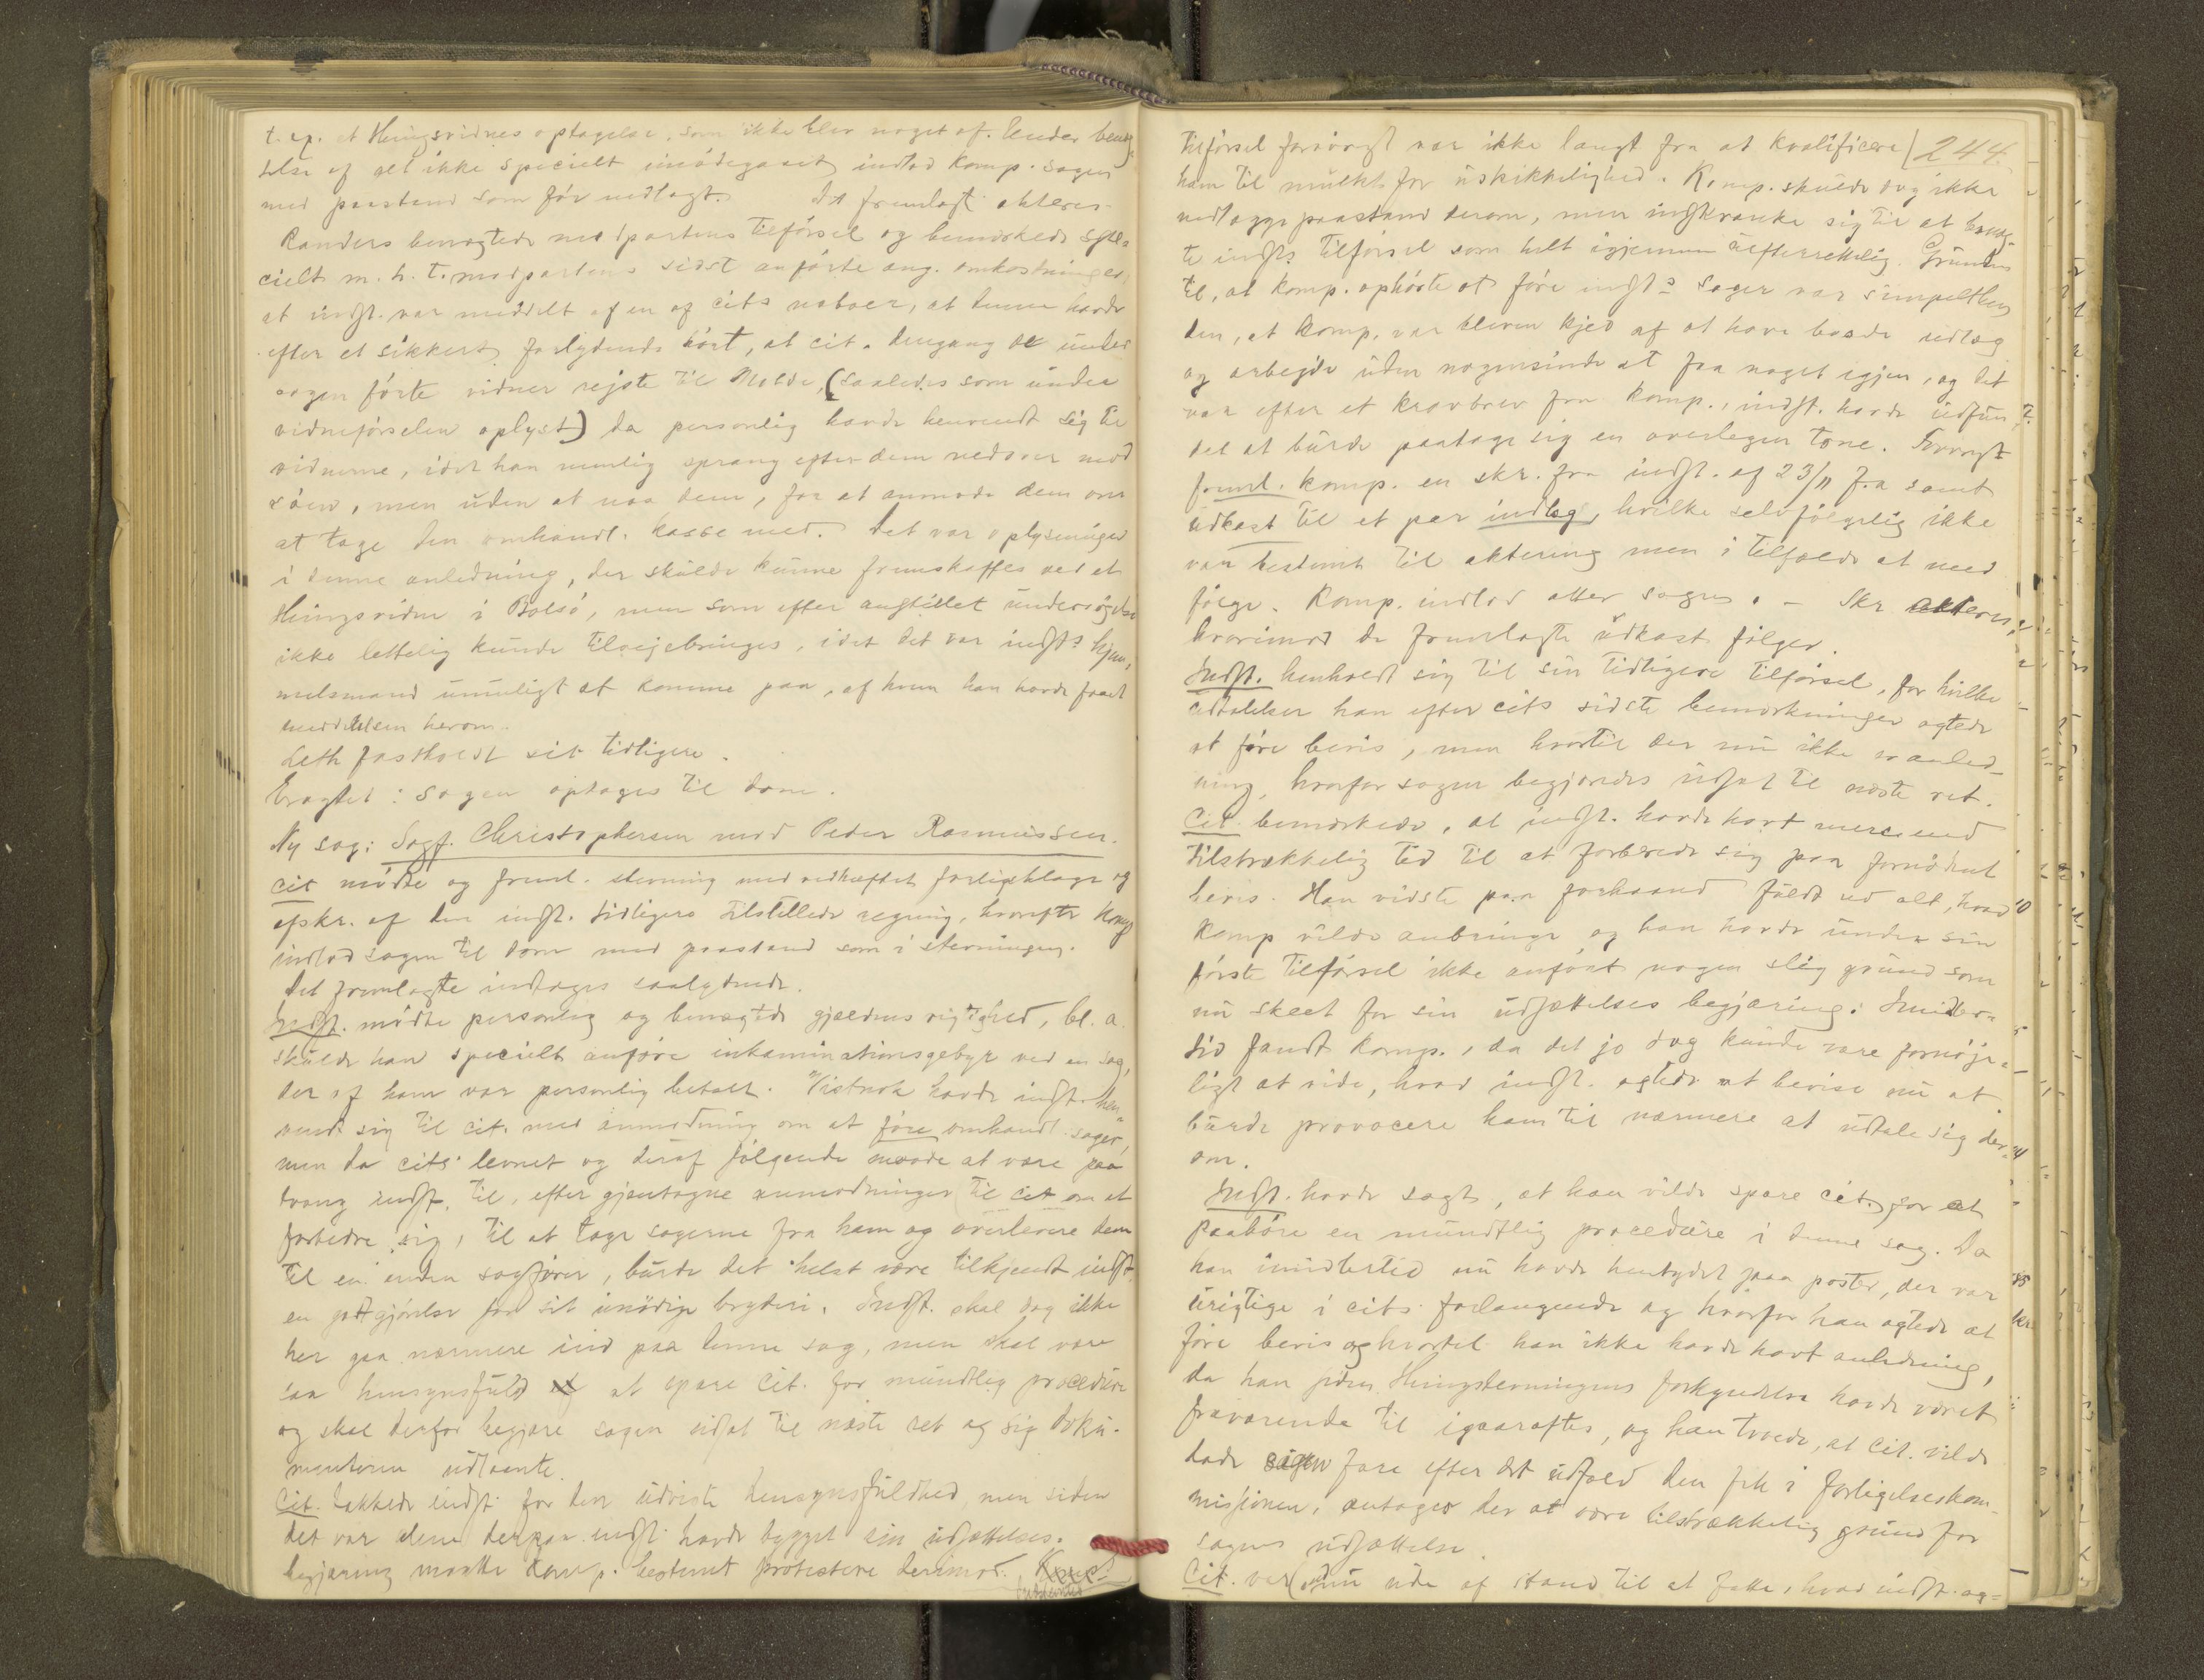 t. ex. et thingsvidnes optagelse, som ikke blev noget af. Under benæg-
telse af alt ikke specielt imødegaaet indlod komp. sagen
med paastand som før nedlagt. Det fremlagte akteres.
Randers benægtede modpartens tilførsel og bemærkede spe-
cielt m. h. t. modpartens sidst anførte ang. omkostninger,
at indst. var meddelt af en af cits naboer, at denne havde
efter et sikkert forlydende hørt, at cit. dengang de under
sagen førte vidner rejste til Molde, (saaledes som under
vidneførselen oplyst) da personlig havde henvendt sig til
vidnerne, idet han nemlig sprang efter dem nedover mod
søen, men uden at naa dem, for at anmode dem om
at tage den omhandl. kasse med. Det var oplysninger
i denne anledning, der skulde kunne fremskaffes ved et
thingsvidne i Bolsø, men som efter anstillet undersøgelse
ikke lettelig kunde tilvejebringes, idet det var indsts hjem-
melsmand umuligt at komme paa, af hvem han havde faaet
meddelelsen herom.
Leth fastholdt sit tidligere.
Eragtet: Sagen optages til dom.
Ny sag: Sagf. Christophersen mod Peder Rasmussen.
Cit mødte og freml. stevning med vedhæftet forligsklage og
afskr. af den indst. tidligere tilstillede regning, hvorefter komp
indlod sagen til dom med paastand som i stevningen.
Det fremlagte indtages saalydende.
Indst. mødte personlig og benægtede gjældens rigtighed, bl. a.
skulde han specielt anføre inkaminationsgebyr ved en sag,
der af ham var personlig betalt. Vistnok havde indst. hen-
vendt sig til cit. med anmodning om at føre omhandl. sager,
men da cits levnet og deraf følgende maade at være paa
tvang indst. til, efter gjentagne anmodninger til cit om at
forbedre sig, til at tage sagerne fra ham og overlevere dem
til en anden sagfører, burde det helst være tilkjendt indst.
en godtgjørelse for sit unødige bryderi. Indst. skal dog ikke
her gaa nærmere ind paa denne sag, men skal være
saa hensynsfuld at spare cit. for mundtlig procedure
og skal derfor begjære sagen udsat til næste ret og sig doku-
menterne udlaante.
Cit. takkede indst. for den udviste hensynsfuldhed, men siden
det var alene derpaa indst. havde bygget sin udsættelses-
begjæring maatte komp. bestemt protestere derimod.
244.
Tilførsel forøvrigt var ikke langt fra at kvalificere
ham til mulkt for uskikkelighed. Komp. skulde dog ikke
nedlægge paastand derom, men indskrænke sig til at benæg-
te indsts tilførsel som helt igjennem uefterrettelig. Grunden
til, at komp. ophørte at føre indsts sager var simpelthen
den, at komp. var bleven kjed af at have baade udlæg
og arbejde uden nogensinde at faa noget igjen, og det
var efter et kravbrev fra komp., indst. havde udfun-
det at burde paatage sig en overlegen tone. Forøvrigt
freml. komp. en skr. fra indst. af 23/11 f.a samt
udkast til et par indlæg, hvilke selvfølgelig ikke
var bestemt til aktering men i tilfælde at med
følge. Komp. indlod atter sagen. - Skr akteres,
hvorimod de fremlagte udkast følger.
Indst. henholdt sig til sin tidligere tilførsel, for hvilke
udtalelser han efter cits sidste bemærkninger agtede
at føre bevis, men hvortil der nu ikke var anled-
ning, hvorfor sagen begjæredes udsat til næste ret.
Cit. bemærkede, at indst. havde havt mere end
tilstrækkelig tid til at forberede sig paa fornødent
bevis. Han vidste paa forhaand fuldt ud alt, hvad
komp vilde anbringe og han havde under sin
første tilførsel ikke anført nogen slig grund som
nu skeet for sin udsættelses begjæring. Imidler-
tid fandt komp., da det jo dog kunde være fornøje-
ligt at vide, hvad indst. agtede at bevise nu at
burde provocere ham til nærmere at udtale sig der-
om.
Indst. havde sagt, at han vilde spare cit. for at
paahøre en mundtlig procedure i denne sag. Da
han imidlertid nu havde hentydet paa poster, der var
urigtige i cits forlangende og hvorfor han agtede at
føre bevis og hvortil han ikke havde havt anledning,
da han siden thingstevningens forkyndelse havde været
fraværende til igaaraftes, og han troede, at cit. vilde
lade sagen fare efter det udfald den fik i forligelseskom-
missionen, antages der at være tilstrækkelig grund for
sagens udsættelse.
Cit. var nu ude af stand til at fatte, hvad indst. ag-